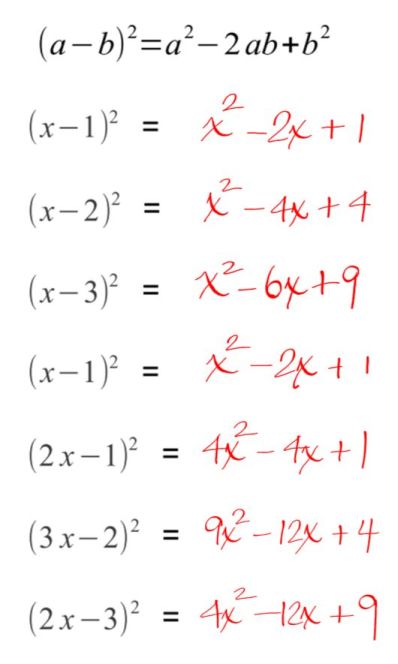 (a−b)²=a²−2ab+b²
(x−1)² = x²−2x+1
(x−2)² = x²−4x+4
(x−3)² = x²−6x+9
(x−1)² = x²−2x+1
(2x−1)² = 4x²−4x+1
(3x−2)² = 9x²−12x+4
(2x−3)² = 4x²−12x+9